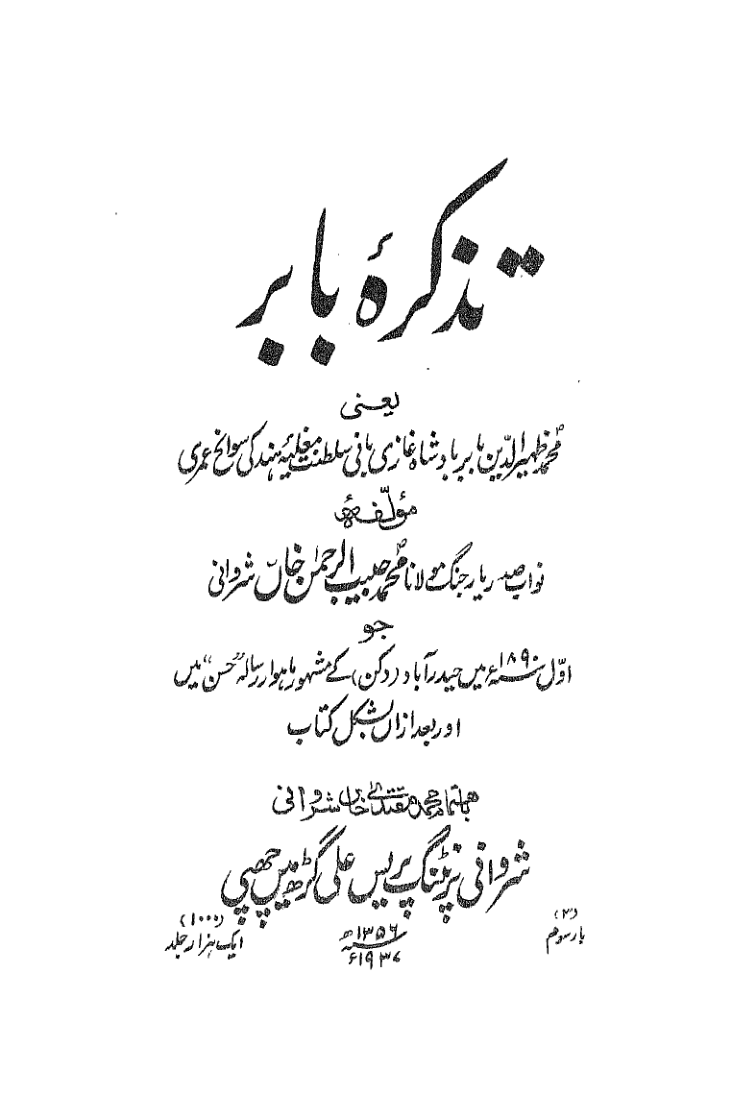 تذکرۂ بابر
یعنی
محمدؐ ظہیرالدّین بابر بادشاہ غازی بانی سلطنت مغلیۂ ہند کی سوانح عمری
مؤلّفہٗ
نواب صدر یار جنگ مولانا محمدؐ حبیب الرحمٰن خاں شروانی
جو
اوّل ۱۸۹۰ء میں حیدرآباد (دکن) کے مشہور ماہوار رسالہ "حسن" میں
اور بعد ازاں بشکل کتاب
باہتمام محمد مقتدیٰ خاں شروانی
شروانی پرنٹنگ پریس علی گڑھ میں چھپی
(۳) (۱۰۰۰)
بار سوم ۱۳۵۶ھ ایک ہزار جلد
۱۹۳۷ء